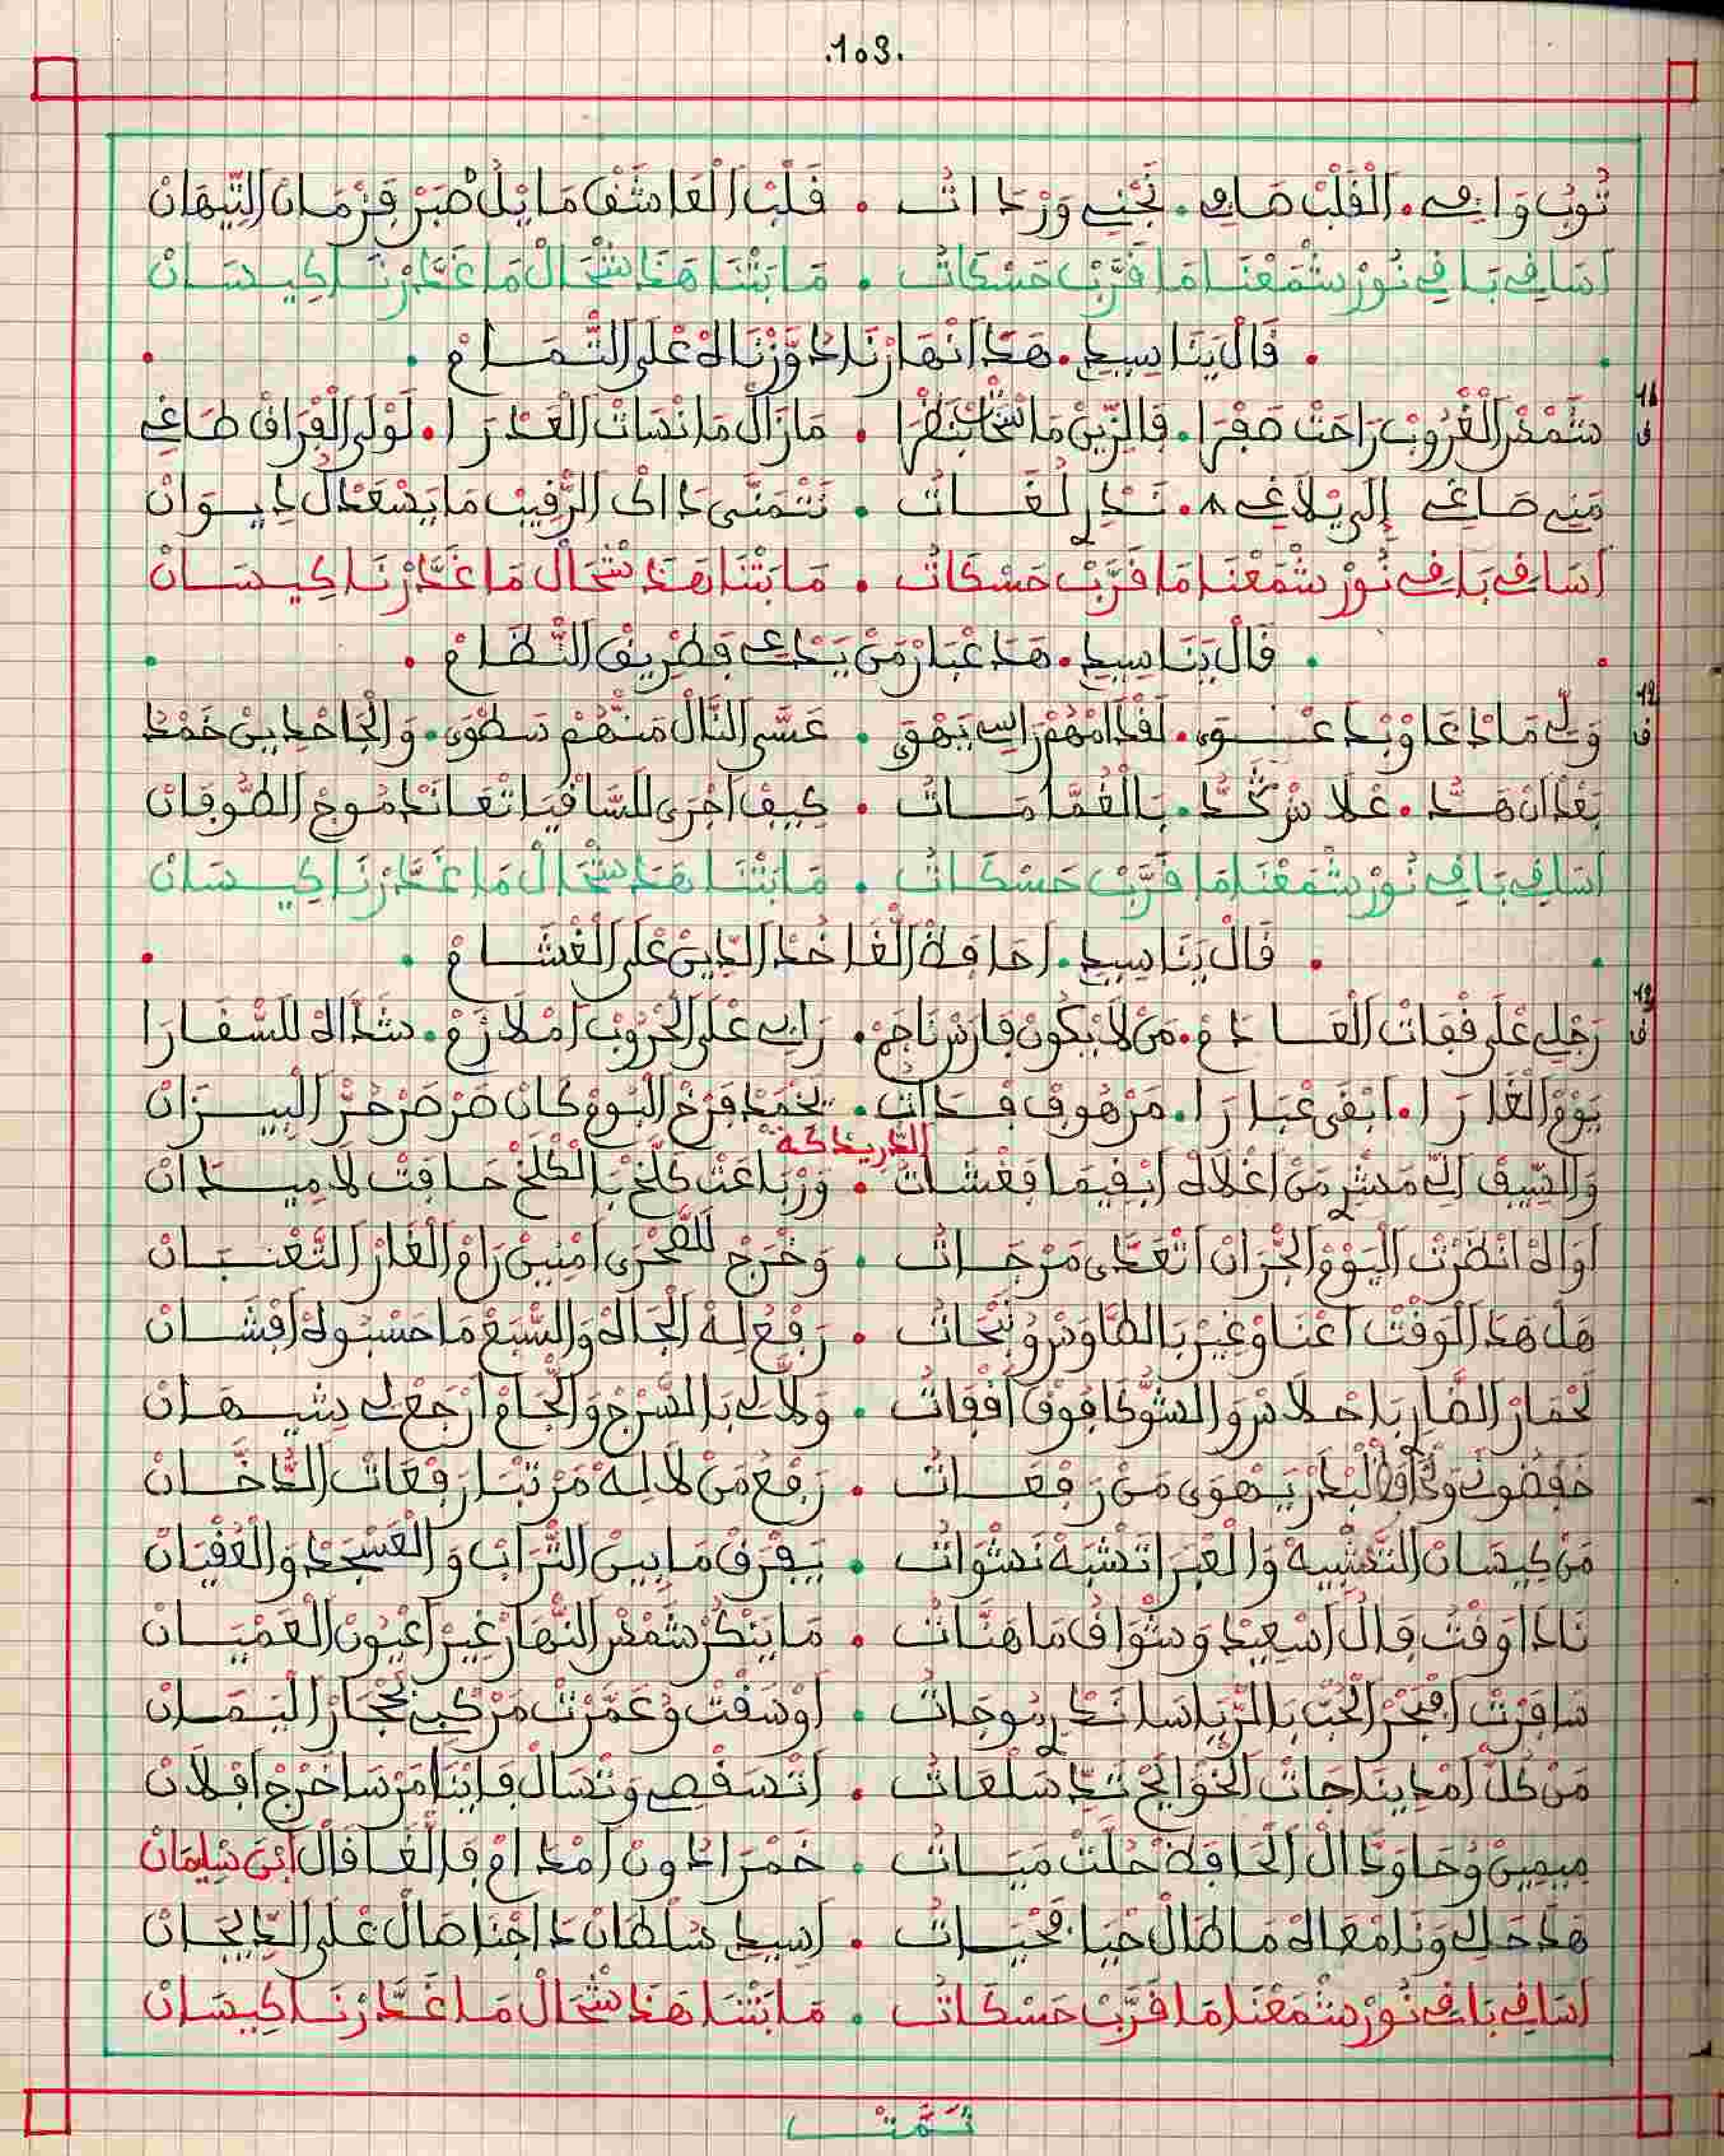 .103.
ثُوبْ وَافِي. الْقَلْبْ صَافِي. نَجْنِي وَرْدَاتُ . قَلْبْ الْعَاشَقْ مَا يْلُ صْبَرْ فَزْمَانْ التِّيهَانْ
اسَاقِي بَاقِي نُورْ شْمَعْنَا مَا قَرَّبْ حَسْكَاتُ . مَا بَتْنَا هَذَا شْحَالْ مَا غَدَّرْنَا كِيسَانْ
. قَالْ يَنَا سِيدِي. هَذَا نْهَارْنَا دَوَّزْنَاهْ عْلَى التّْمَامْ .
11
ف
شَمْسْ الْغْرُوبْ رَاحَتْ صَفْرَا. فَالزِّينْ مَا نْظْرَا . مَازَالْ مَا نْسَاتْ الْعَدْرَا. لَوْلَى الْفْرَاقْ طَاغِي
مَنِّي صَاغِي إِلَى يْلَاغِي. تَدْرِ لَغَاتُ . نَتْمَنَّى دَاكْ الرّْقِيبْ مَا يَسْعَدْ لُ دِيوَانْ
اسَاقِي بَاقِي نُورْ شْمَعْنَا مَا قَرَّبْ حَسْكَاتُ . مَا بَتْنَا هَذَا شْحَالْ مَا غَدَّرْنَا كِيسَانْ
. قَالْ يَنَا سِيدِي. هَذَا عْبَارْ مَنْ يَدْعِي فَطْرِيقْ النّْظَامْ .
12
ف
وَلِّي مَادْعَاوْ بْدَعْوَى. لَقْدَامْهُمْ رَاسِي يَهْوَى . عَسَّى النَّالْ مَنْهُمْ سَطْوَى. وَالْجَاحْدِينْ خَمْدُ
بَعْدْ انْ هَدُّ. عْلَاشْ كَدُّ. بَالْغُمَّامَاتُ . كِيفْ اجْرَى لَلسَّاقْيَا تْعَانَدْ مُوجْ الطُّوفَانْ
اسَاقِي بَاقِي نُورْ شْمَعْنَا مَا قَرَّبْ حَسْكَاتُ . مَا بَتْنَا هَذَا شْحَالْ مَا غَدَّرْنَا كِيسَانْ
. قَالْ يَنَا سِيدِي. احَافَظْ الْغَا خُدْ الدِّينْ عْلَى الْغْشَامْ .
13
ف
رَجْلِي عْلَى قْفَاتْ الْعَادَمْ. مَنْ لَا يْكُونْ فَارَسْ نَاجَمْ. رَانِي عْلَى الْحْرُوبْ امْلَازَمْ. شَدَّاهْ لَلسّْفَارَا
يَوْمْ الْغَارَا. ابْقَى عْبَارَا. مَرْهُوفْ فْدَاتُ. يَحْمَدْ فَرْخْ الْبُومْ كَانْ صَرْصَرْ حُرّْ الْبِيزَانْ
الدريدكة
وَالسِّيفْ الِّي مَشِّ مَنْ اغْلَاهْ ابْقِيمَا فَغْشَاتُ . وَرْبَاعَتْ كَلْخْ بَالْكَلْخْ حَافَتْ لَامِيدَانْ
اوَاهْ انْظَرْتْ الْيَوْمْ الْجْرَانْ اتْعَدَّى مَرْجَاتُ . وَخْرَجْ لَلصَّحْرَى امْنِينْ رَامْ الْغَارْ التَّعْبَانْ
هَلْ هَذْ الْوَقْتْ اعْنَاوْ غِيرْ بَالطَّاوَسْ وُنَبْحَاتُ . رَفْعْ لِهْ الْجَاهْ وَالسّْبَعْ مَا حَسْبُوهْ افْشَانْ
لَحْمَارْ الضَّارِ بَاحْلَاسْ وَالشُّوكَا فُوقْ اقْفَاتُ . وَلَّا لِي بَالسَّرْجْ وَالْجَامْ ارْجَعْ لِي شِيهَانْ
خَفْضُونِي وَلْبْدَرْ يَهْوَى مَنْ رَفْعَاتُ . رَفْعْ مَنْ لَا لِهْ مَرْتْبَا رَفْعَاتْ الدَّخَّانْ
مَنْ كِيسَانْ التَّشْبِيهْ وَالْعَبْرَا تَشْبَهْ نَشْوَاتُ . يَفْرَقْ مَا بِينْ التّْرَابْ وَالْعَسْجَدْ وَالْعُقْيَانْ
نَادَا وَقْتْ قَالْ اسْعِيدْ وَشْوَافْ مَا هَنَّاتُ . مَا يَنْكَرْ شَمْسْ النّْهَارْ غِيرْ اعْيُونْ الْعَمْيَانْ
سَافَرْتْ افْبْحَرْ الْحُبّْ بَالرّْيَاسَا نَدْرِ مُوجَاتُ . اوْسَقْتْ وُعَمَّرْتْ مَرْكْبِي تَجَّارْ الْيَمَانْ
مَنْ كُلّْ امْدِينَا جَاتْ الْحْوَايَجْ نَدِّ سَلْعَاتُ . اتْسَقْصِي وَتْسَالْ فَايْنَا مَرْسَا خْرَجْ افْلَانْ
مِيمِينْ وُحَا وَدَالْ الْحَافَظْ حْلَتْ مْيَاتُ . خَمْرَا دُونْ امْدَامْ فَالْغَا قَالْ ابْنْ سْلِيمَانْ
هَذَا حَالِي وَنَا مْعَاهْ مَا طَالْ حْيَا مَحْيَاتُ . اسِيدِي سُلْطَانْ دَاجْنَا صَالْ عْلَى الدِّيجَانْ
اسَاقِي بَاقِي نُورْ شْمَعْنَا مَا قَرَّبْ حَسْكَاتُ . مَا بَتْنَا هَذَا شْحَالْ مَا غَدَّرْنَا كِيسَانْ
تَمَّتْ